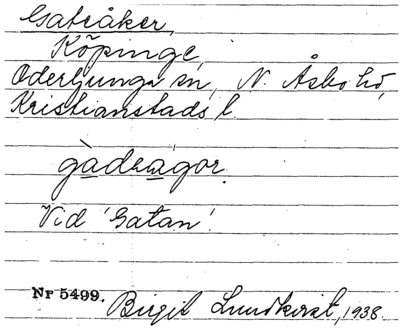 Gatåker,
Köpinge,
Oderljunga sn, N. Åsbo hd,
Kristianstads l.
Vid 'Gatan'.
Nr 5499. Birgit Lundkvist, 1938.